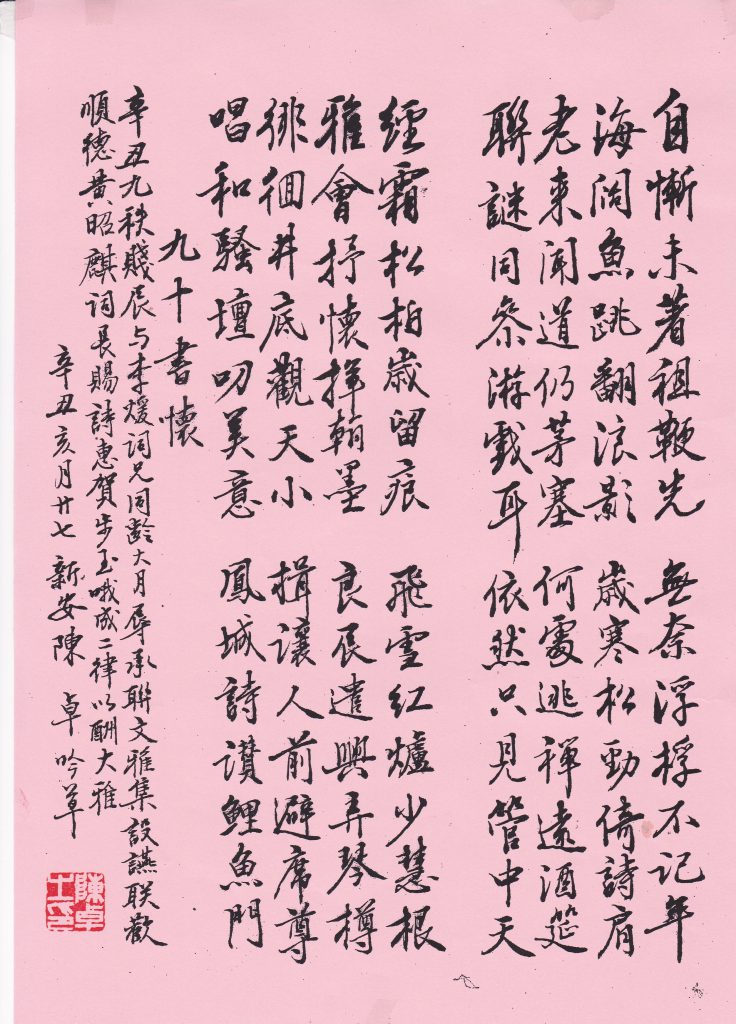 自慚未著祖鞭先　無奈浮桴不記年
海闊魚跳翻浪影　歲寒松勁倚詩肩
老來聞道仍茅塞　何處逃禪遠酒筵
聯謎同參游戲耳　依然只見管中天
經霜松柏歲留痕　飛雪紅爐少慧根
雅會抒懷揮翰墨　良辰遣興弄琴樽
徘徊井底觀天小　揖讓人前避席尊
唱和騷壇叨美意　鳳城詩讃鯉魚門
九十書懷
辛丑九秩賤辰与李煖詞兄同齡大月辱承聯文雅集設讌联歡
順德黃昭麒词長賜詩惠賀步玉哦成二律以酬大雅
辛丑亥月廿七 新安陳卓吟草
陳卓